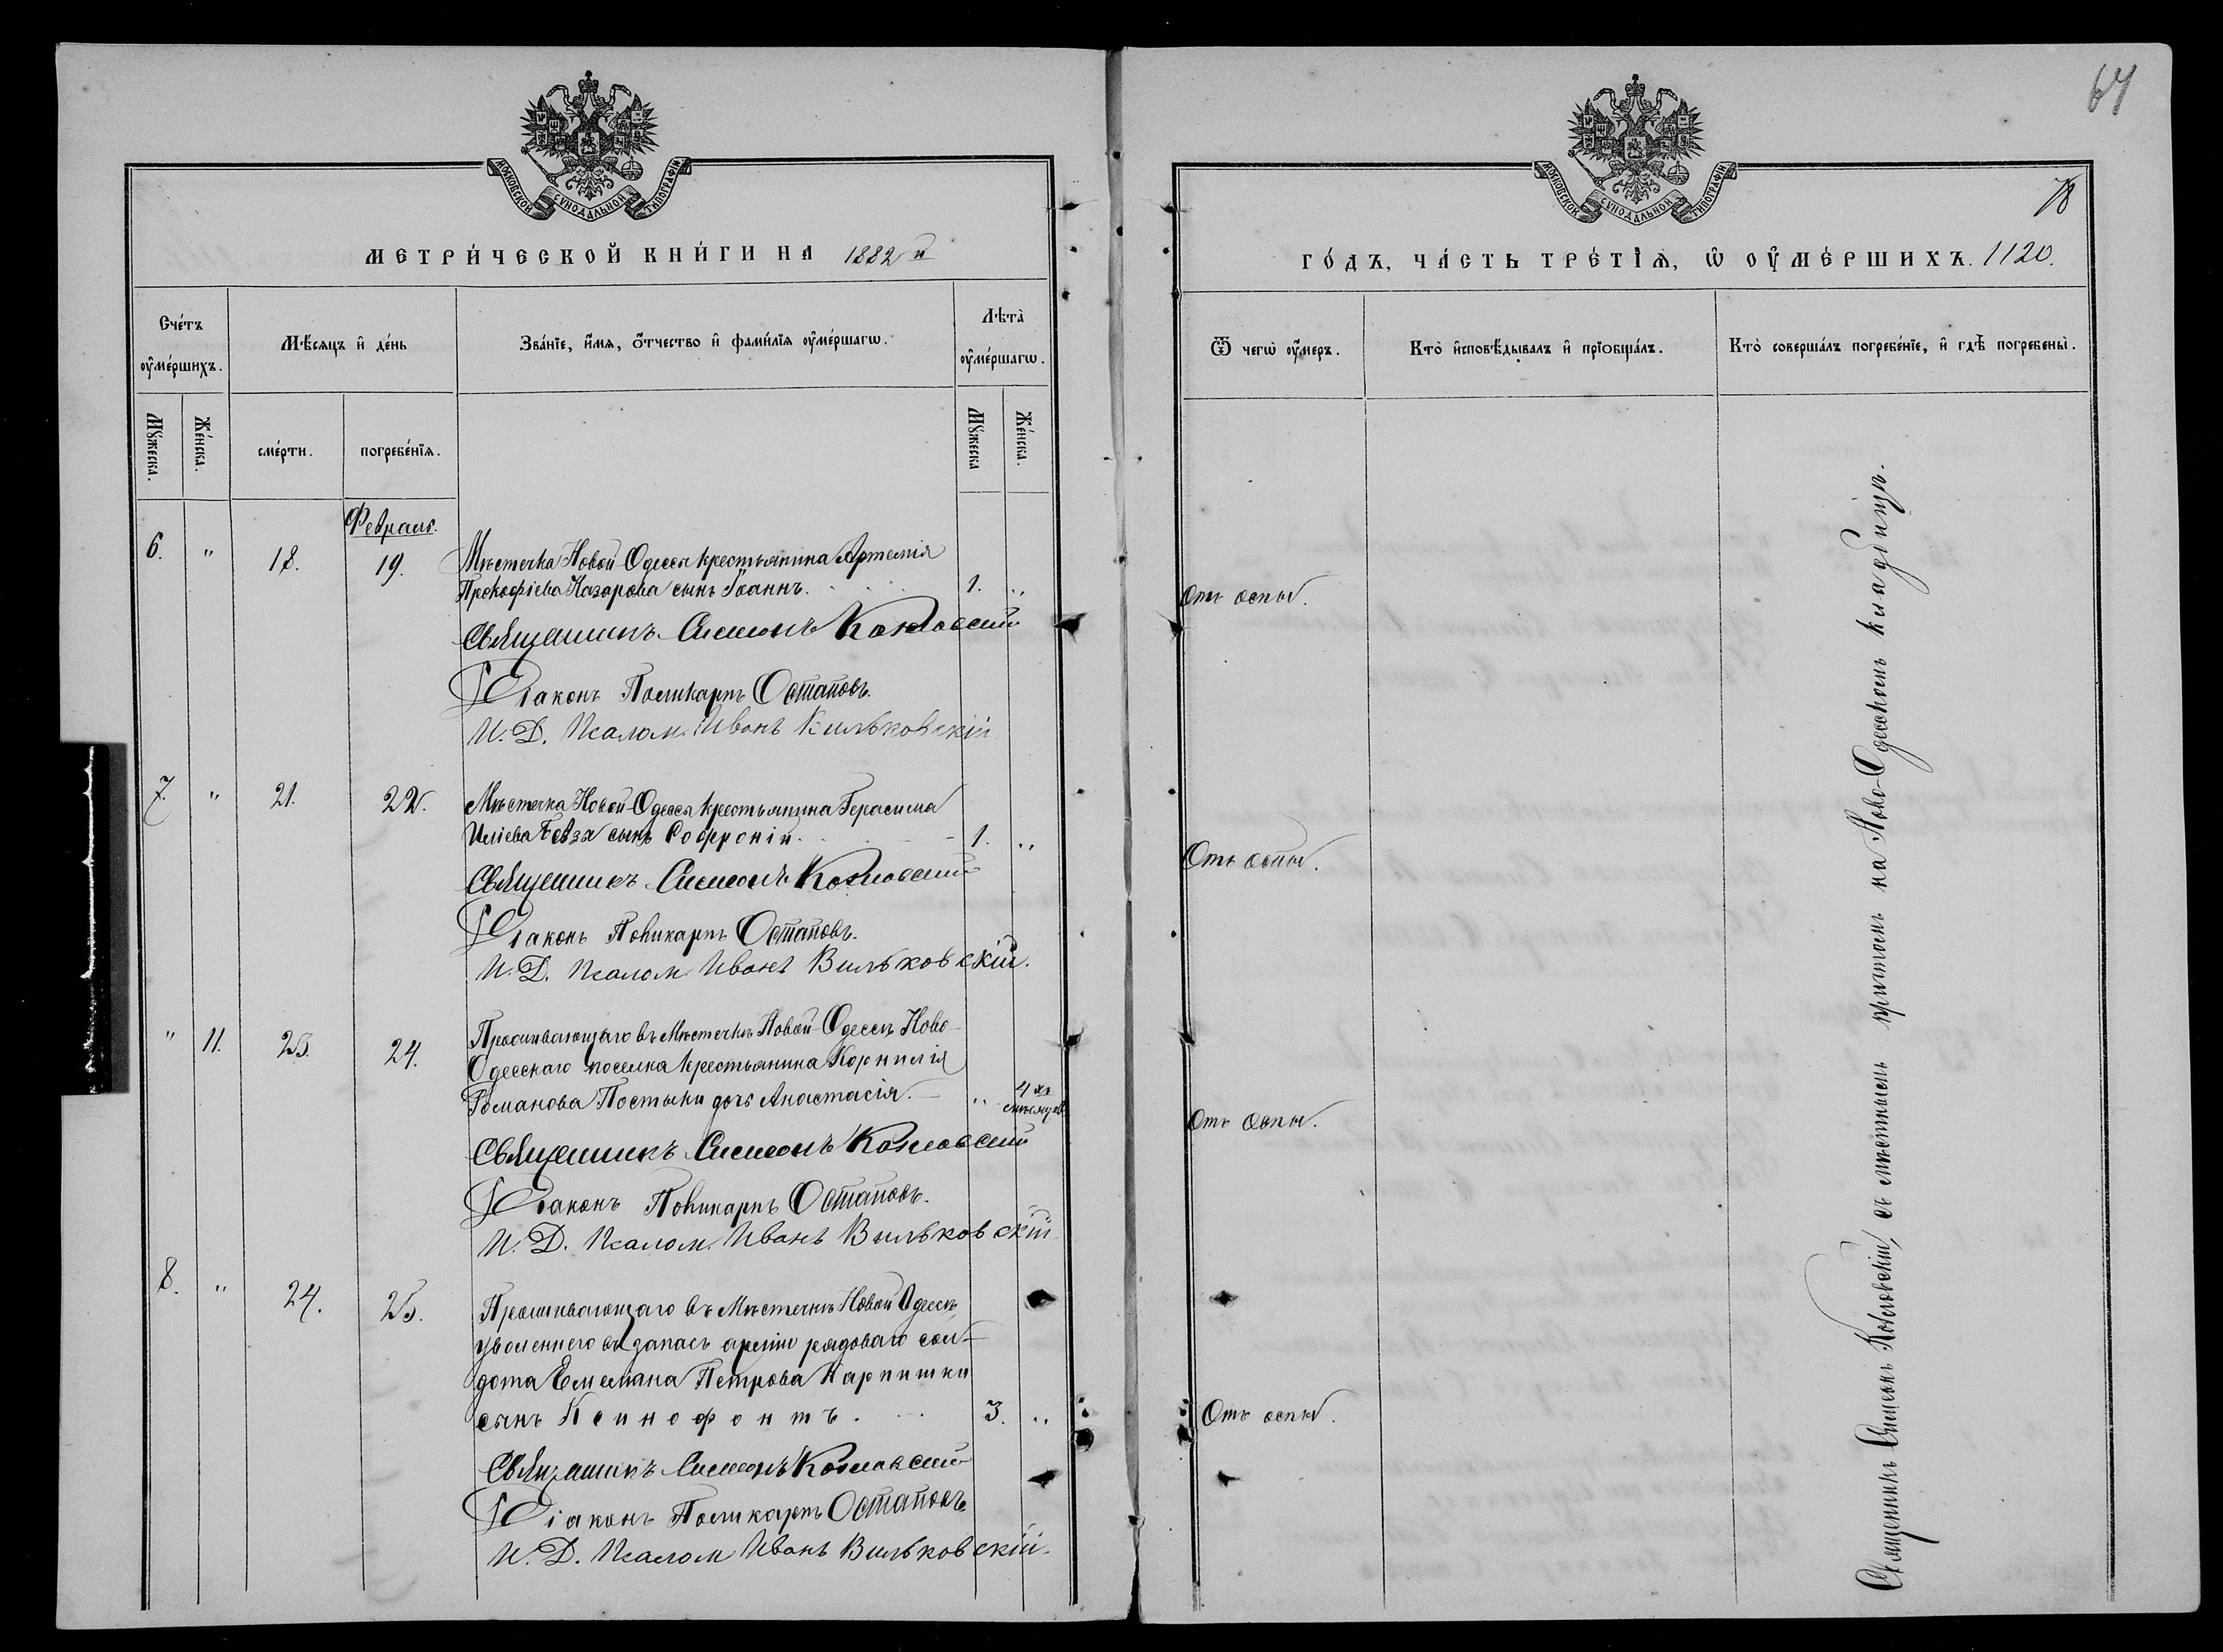 МОСКОВСКОЙ СѴНОДАЛЬНОЙ ТИПОГРАФІИ
МЕТРИ́ЧЕСКОЙ КНИ́ГИ НА 1882 й
Счéтъ ᲂу҆мéршихъ.
Мѣ́сѧцъ и҆ де́нь
Зва́нїе, и҆́мѧ, ѻ҆́тчество и҆ фами́лїѧ ᲂу҆ме́ршагѡ.
Лѣта̀ ᲂу҆ме́ршагѡ.
Мꙋ́жеска.
Же́нска.
сме́рти.
погребе́нїѧ.
Мꙋ́жеска
Же́нска.
Февраль.
6. " 18. 19. Мѣстечка Новой Одессы крестьянина Артемія
Прокофіева Назарова сынъ Іоаннъ. 1. "
Священникъ Симеонъ Козловскій
Діаконъ Поликарпъ Остаповъ.
И. Д. Псалом. Иванъ Вильковскій
7. " 21. 22. Мѣстечка Новой Одессы крестьянина Герасима
Иліева сынъ Софроній. 1. "
Священникъ Симеонъ Козловскій
Діаконъ Поликарпъ Остаповъ.
И. Д. Псалом. Иванъ Вильковскій.
" 11. 23. 24. Проживающаго въ Мѣстечкѣ Новой Одессѣ, Ново-
Одесскаго поселка крестьянина Корнилія
Романова Постыки дочь Анастасія. " 4 хъ
мѣсяцев
Священникъ Симеонъ Козловскій
Діаконъ Поликарпъ Остаповъ.
И. Д. Псалом. Иванъ Вильковскій
8. " 24. 25. Проживающаго въ Мѣстечкѣ Новой Одессѣ,
уволеннаго въ запасъ арміи рядоваго сол-
дата Емельяна Петрова Карпишки
сынъ Ксинофонтъ. 3. "
Священникъ Симеонъ Козловскій
Діаконъ Поликарпъ Остаповъ
И. Д. Псалом Иванъ Вильковскій.
64
МОСКОВСКОЙ СѴНОДАЛЬНОЙ ТИПОГРАФІИ
78
ГО́ДЪ, ЧА́СТЬ ТРЕ́ТЇѦ, Ѡ҆ ОУ҆МЕ́РШИХЪ. 1120.
Ѿ чегѡ̀ ᲂу҆́меръ.
Кто̀ и҆сповѣ́дывалъ и҆ прїобща́лъ.
Кто̀ соверша́лъ погребе́нїе, и҆ гдѣ̀ погребены̀.
Отъ оспы.
Отъ оспы.
Отъ оспы.
Отъ оспы.
Священникъ Симеонъ Козловскій, съ мѣстнымъ причтомъ на Ново-Одесскомъ кладбищѣ.